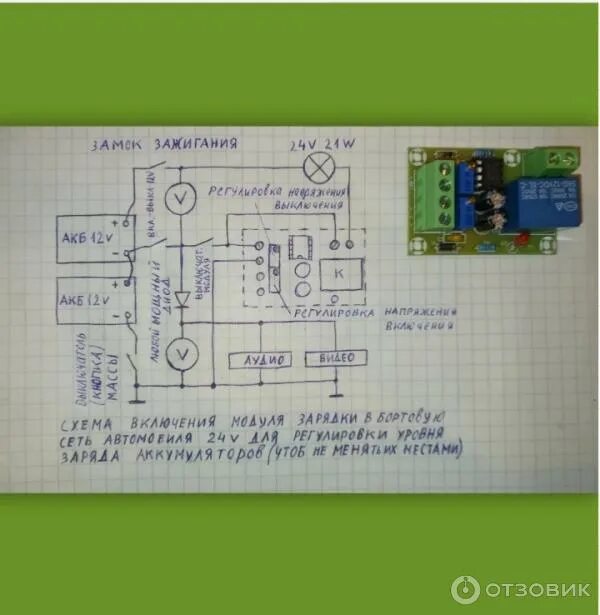 ЗАМОК ЗАЖИГАНИЯ
24V 21W
РЕГУЛИРОВКА НАПРЯЖЕНИЯ
ВЫКЛЮЧЕНИЯ
ВКЛ-ВЫКЛ 12V
V
+
АКБ 12V
-
+
АКБ 12V
-
ЛЮБОЙ МОЩНЫЙ
ДИОД
ВЫКЛЮЧАТ.
МОДУЛЯ
K
РЕГУЛИРОВКА НАПРЯЖЕНИЯ
ВКЛЮЧЕНИЯ
V
АУДИО
ВИДЕО
ВЫКЛЮЧАТЕЛЬ
(КНОПКА)
МАССЫ
СХЕМА ВКЛЮЧЕНИЯ МОДУЛЯ ЗАРЯДКИ В БОРТОВУЮ
СЕТЬ АВТОМОБИЛЯ 24V ДЛЯ РЕГУЛИРОВКИ УРОВНЯ
ЗАРЯДА АККУМУЛЯТОРОВ (ЧТОБ НЕ МЕНЯТЬ ИХ МЕСТАМИ)
SRD-12VDC-SL-C
ОТЗОВИК